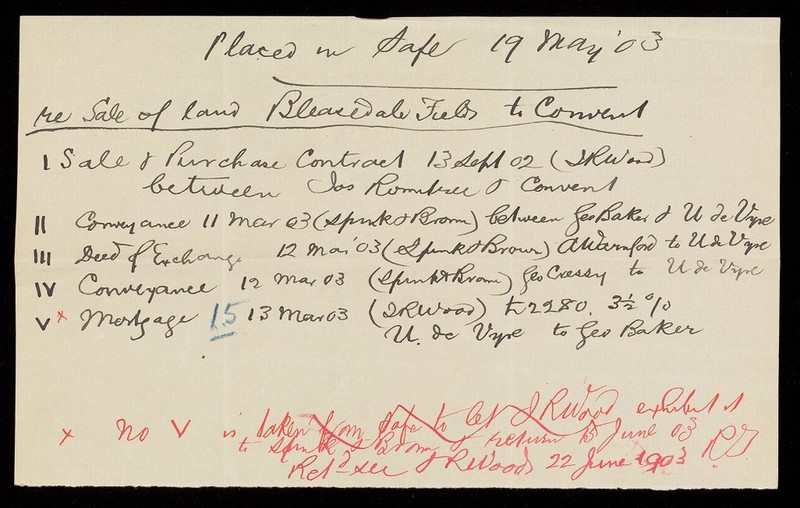 Placed in Safe 19 May '03
re Sale of land Bleasdale Fields to Convent
I Sale & Purchase Contract 13 Sept 02 (J R Wood)
between Jos Rowntree & Convent
II Conveyance 11 Mar 03 (Spink & Brown) between Geo Baker & U de Vyre
III Deed of Exchange 12 Mar 03 (Spink & Brown) A Warnford to U de Vyre
IV Conveyance 12 Mar 03 (Spink & Brown) Geo Cressy to U de Vyre
V x Mortgage 15 13 Mar 03 (J R Wood) £2280. 3½%
U. de Vyre to Geo Baker
x No V is taken from Safe to let J R Wood exhibit it
to Spink & Brown & return it June 03
Retd see J R Woods 22 June 1903